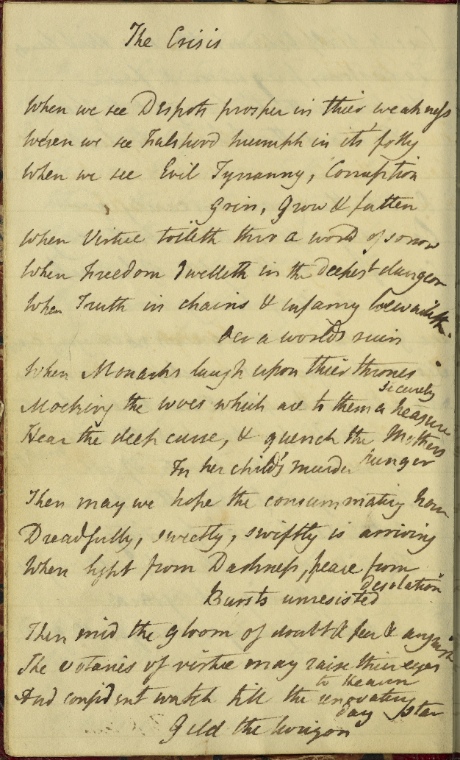 The Crisis
When we see Despots prosper in their weakness
When we see Falshood triumph in its folly
When we see Evil Tyrranny, Corruption
Grin, Grow & fatten
When Virtue toileth thro a world of sorrow
When Freedom dwelleth in the deepest dungeon
When Truth in chains & infamy bewaileth
Oer a world's ruin
When Monarchs laugh upon their thrones securely
Mocking the woes which are to them a treasure
Hear the deep curse, & quench the Mothers hunger
In her child's murder
Then may we hope the consummating hour
Dreadfully, sweetly, swiftly is arriving
When light from Darkness, peace from desolation
Bursts unresisted
Then mid the gloom of doubt & fear & anguish
The votaries of virtue may raise their eyes to Heaven
And confident watch till the renovating day star
Gild the horizon